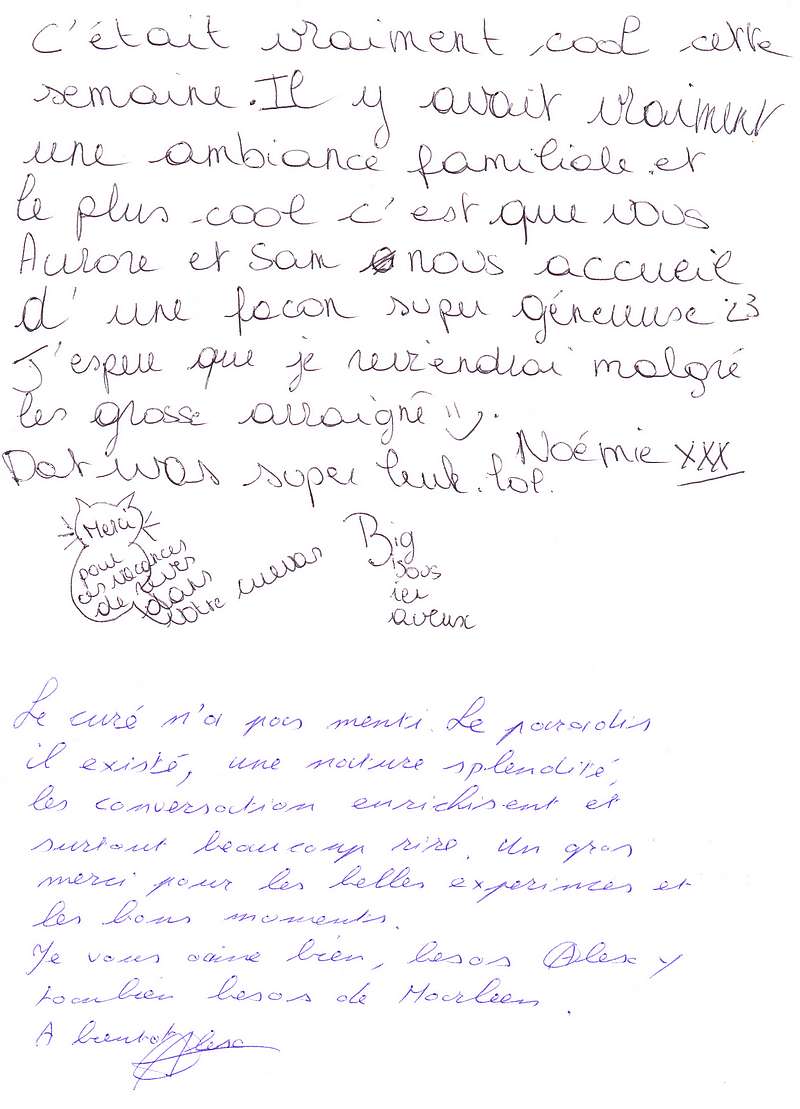 C'était vraiment cool cette
semaine. Il y avait vraiment
une ambiance familiale et
le plus cool c'est que vous
Aurore et Sam nous accueil
d'une façon super géneuse :<3
J'espere que je reviendrai malgré
les grosse arraigné =).
Noémie xxx
Dat was super leuk. lol.
Merci
pour
ces vacances
de rêves
dans
votre cuevas
Big
sous
ici
aveux
Le curé n'a pas menti. Le paradis
il existé, une nature splendité,
les conversation enrichisent et
surtout beaucoup rire. Un gros
merci pour les belles experinces et
les bons moments.
Je vous aime bien, besos Alex y
tambien besos de Marleen.
A bientot Alex